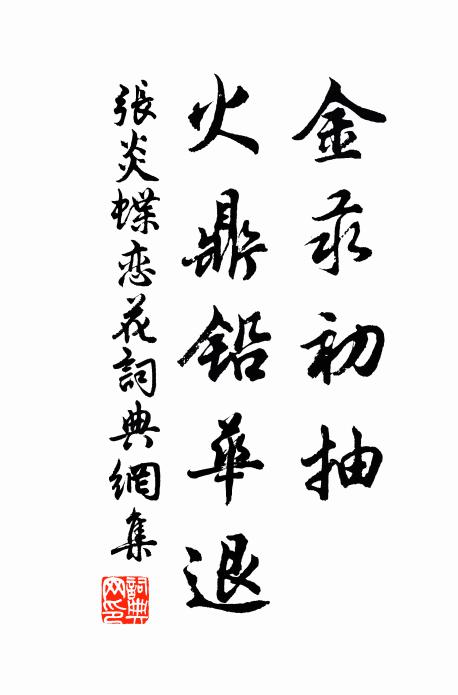 金汞初抽
火鼎鉛華退
張炎蝶恋花詞典網集
詞典
网印